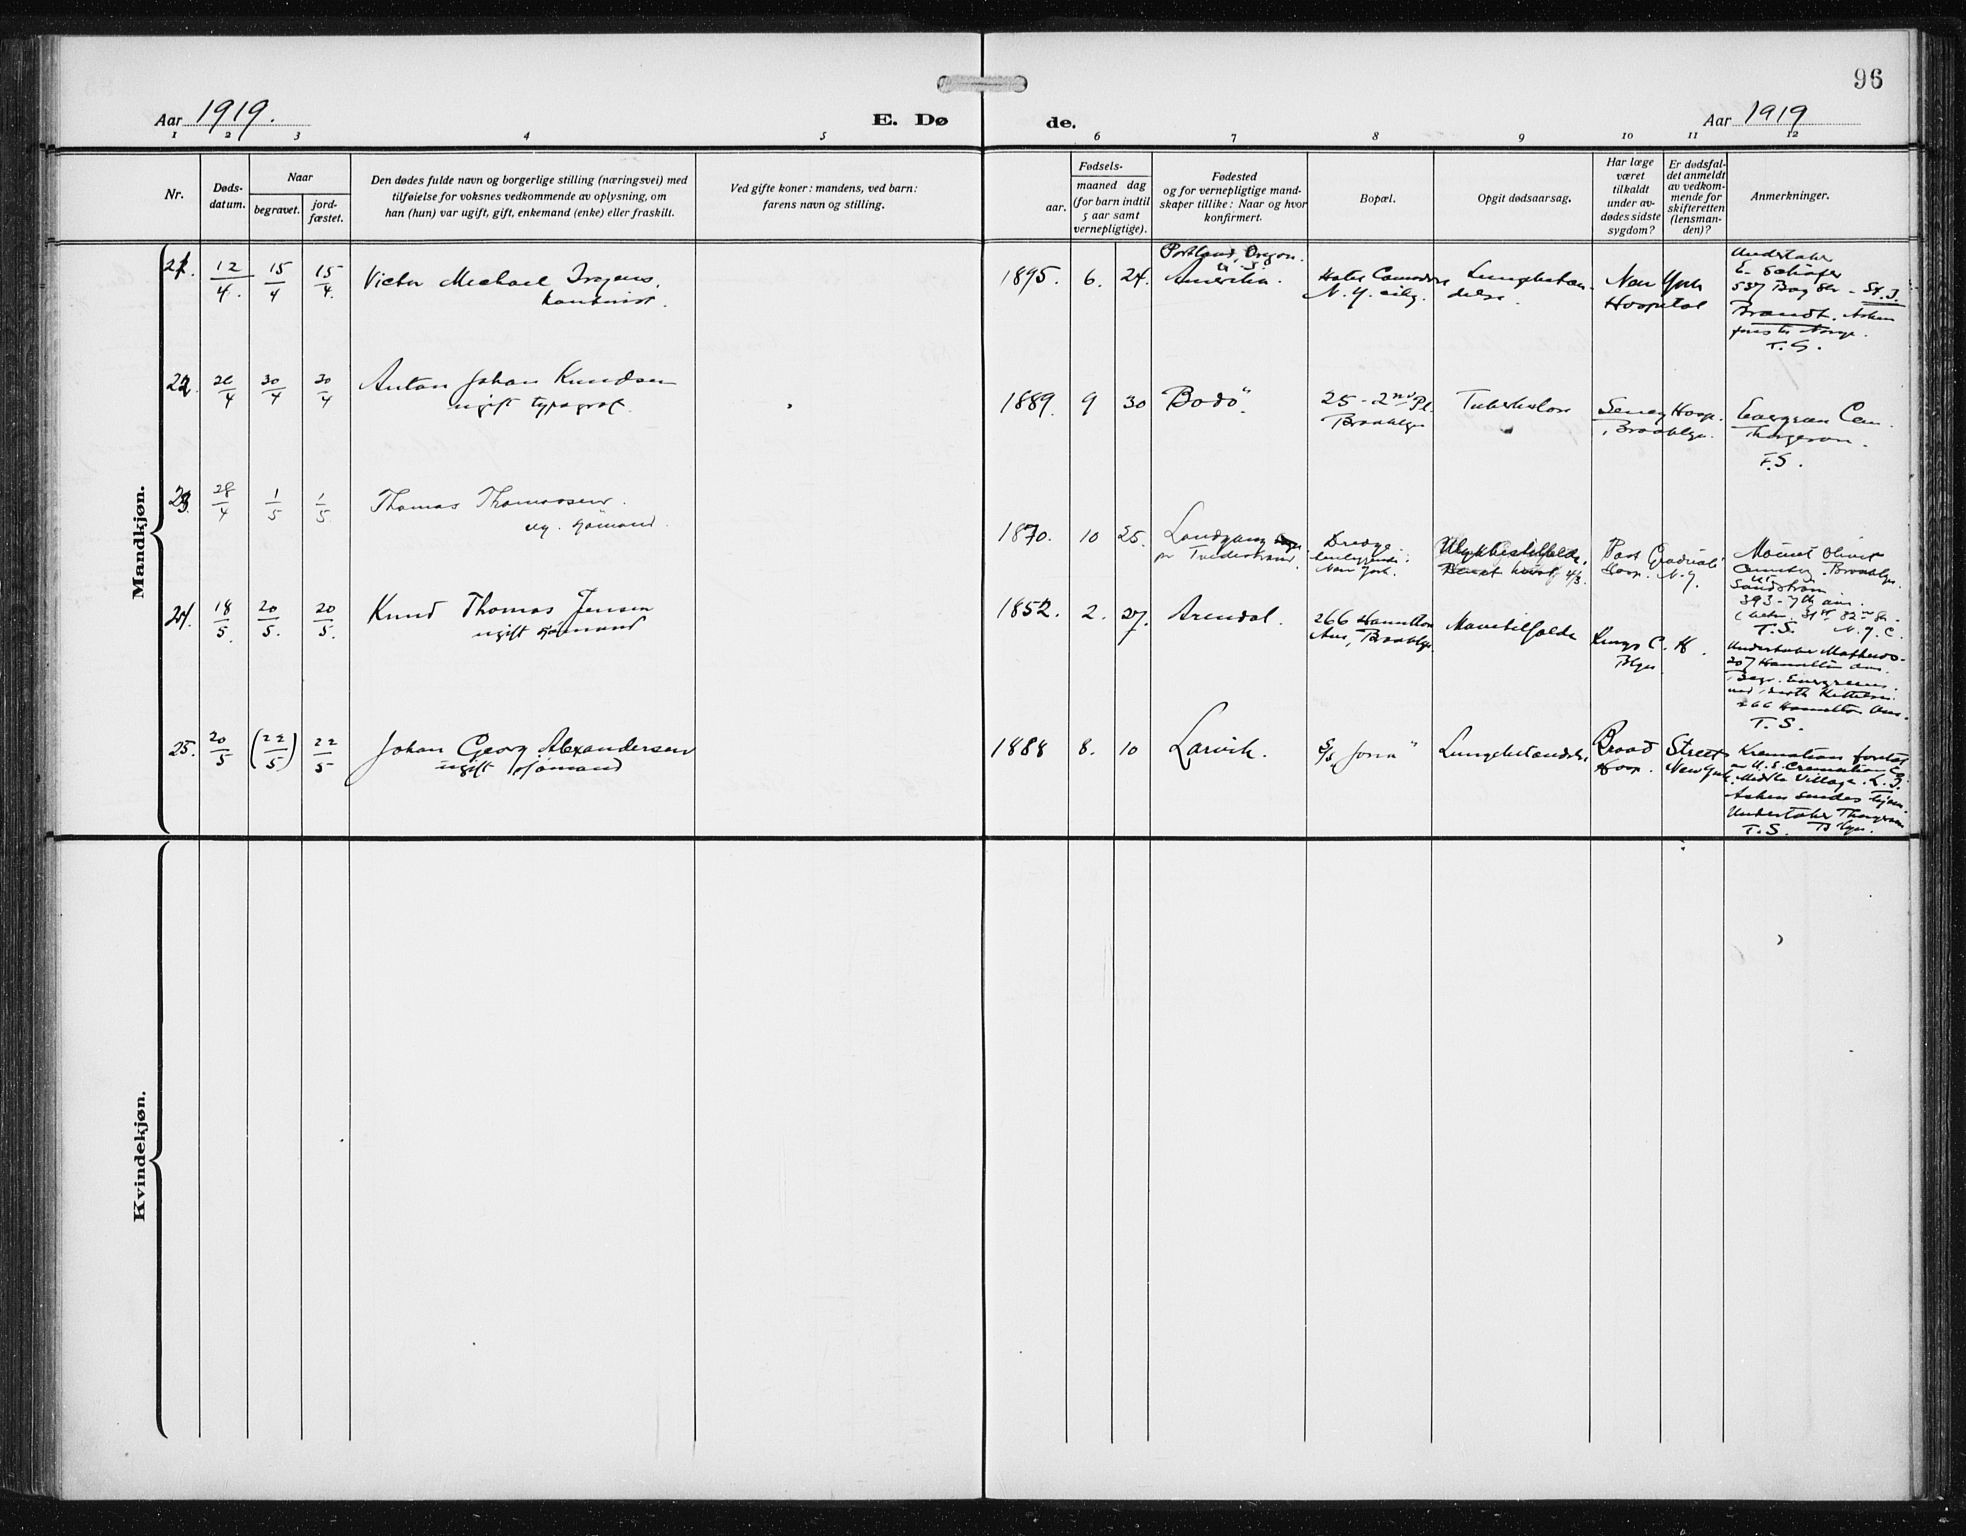 96
Aar 1919.
E. Dø
de.
Aar 1919
1 2 3 4 5 6 7 8 9 10 11 12
Nr.
Døds-
datum.
Naar
begravet.
jord-
fæstet.
Den dødes fulde navn og borgerlige stilling (næringsvei) med
tilføielse for voksnes vedkommende av oplysning, om
han (hun) var ugift, gift, enkemand (enke) eller fraskilt.
Ved gifte koner: mandens, ved barn:
farens navn og stilling.
Fødsels-
aar.
maaned dag
(for barn indtil
5 aar samt
vernepligtige).
Fødested
og for vernepligtige mand-
skaper tillike: Naar og hvor
konfirmert.
Bopæl.
Opgit dødsaarsag.
Har læge
været
tilkaldt
under av-
dødes sidste
sygdom?
Er dødsfal-
det anmeldt
av vedkom-
mende for
skifteretten
(lensman-
den)?
Anmerkninger.
Mandkjøn.
21. 12/4. 15/4 15/4. Victor Michael
1895. 6. 24.
Portland, Oregon.
Amerika.
Hotel Comodore
N. Y. city.
Lungebetæn-
delse.
New York
Hospital
Undertaker
537 Bay St. - St. I.
Brandt. Asken
Norge.
T. S.
22. 30/4 Anton Johan Knudsen
ugift typograf.
1889. 9 30 Bodö
25 - 2nd Pl.
Brooklyn
Tuberkulose
Seney Hosp.
Brooklyn.
Evergreen Cem.
Thorgersen.
T.S.
23. 28/4 1/5 1/5 Thomas Thomassen.
ug. sjömand.
1870. 10 25.
pr Tvedestrand.
Dredge
New York.
Ulykkestilfælde.
Post Graduate
Hosp. N. Y.
Mount Olivet
Cemetery. Brooklyn.
Sandström
393 - 7th av.
T.S. N. Y. C.
24. 18/5. 20/5. 20/5. Knud Thomas Jensen
ugift sjömand
1852. 2. 27. Arendal.
266 Hamilton
Ave, Brooklyn.
Mavetilfælde
Kings C. H.
Blyn
Undertaker Mathews-
207 Hamilton ave.
Begr. Evergreens.
266 Hamilton Ave.
T. S.
25. 20/5 (22/5) 22/5 Johan Georg Alexandersen
ugift sjömand
1888 8. 10 Larvik.
S/S
Lungebetændelse
Broad Street
Hosp. New York.
Kremation
av U. S. Cremation Co.
Middle Village. L. I.
Asken sendes hjem.
Undertaker Thorgersen
T. S. Blyn.
Kvindekjøn.